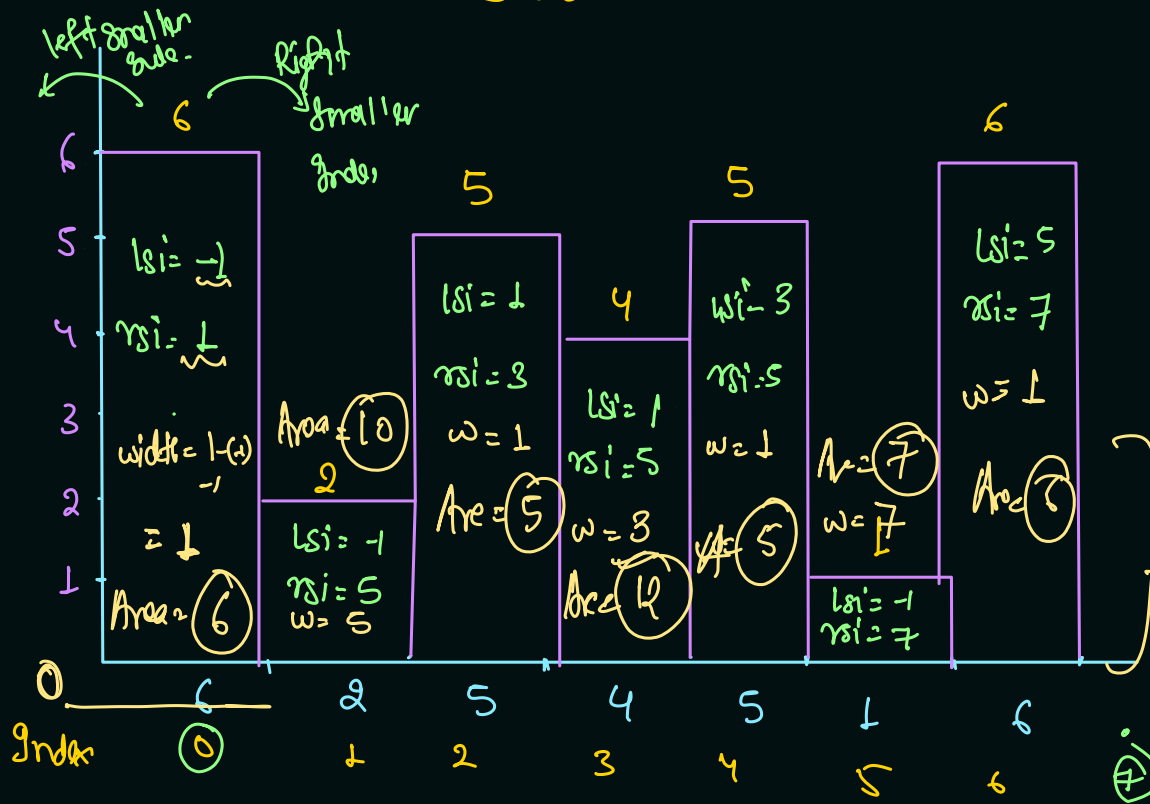 left smaller
Right
smaller
6
6
5
5
4
2
6
5
4
3
2
1
0
lsi = -1
rsi = 1
width = 1-(-1)
-1
= 1
Area = 6
Area = 10
lsi = -1
rsi = 5
w = 5
lsi = 1
rsi = 3
w = 1
Are = 5
lsi = 1
rsi = 5
w = 3
Are = 12
lsi = 3
rsi = 5
w = 1
A = 5
Ar = 7
w = 7
1
lsi = -1
rsi = 7
lsi = 5
rsi = 7
w = 1
Are = 6
6 2 5 4 5 1 6
Index 0 1 2 3 4 5 6 7